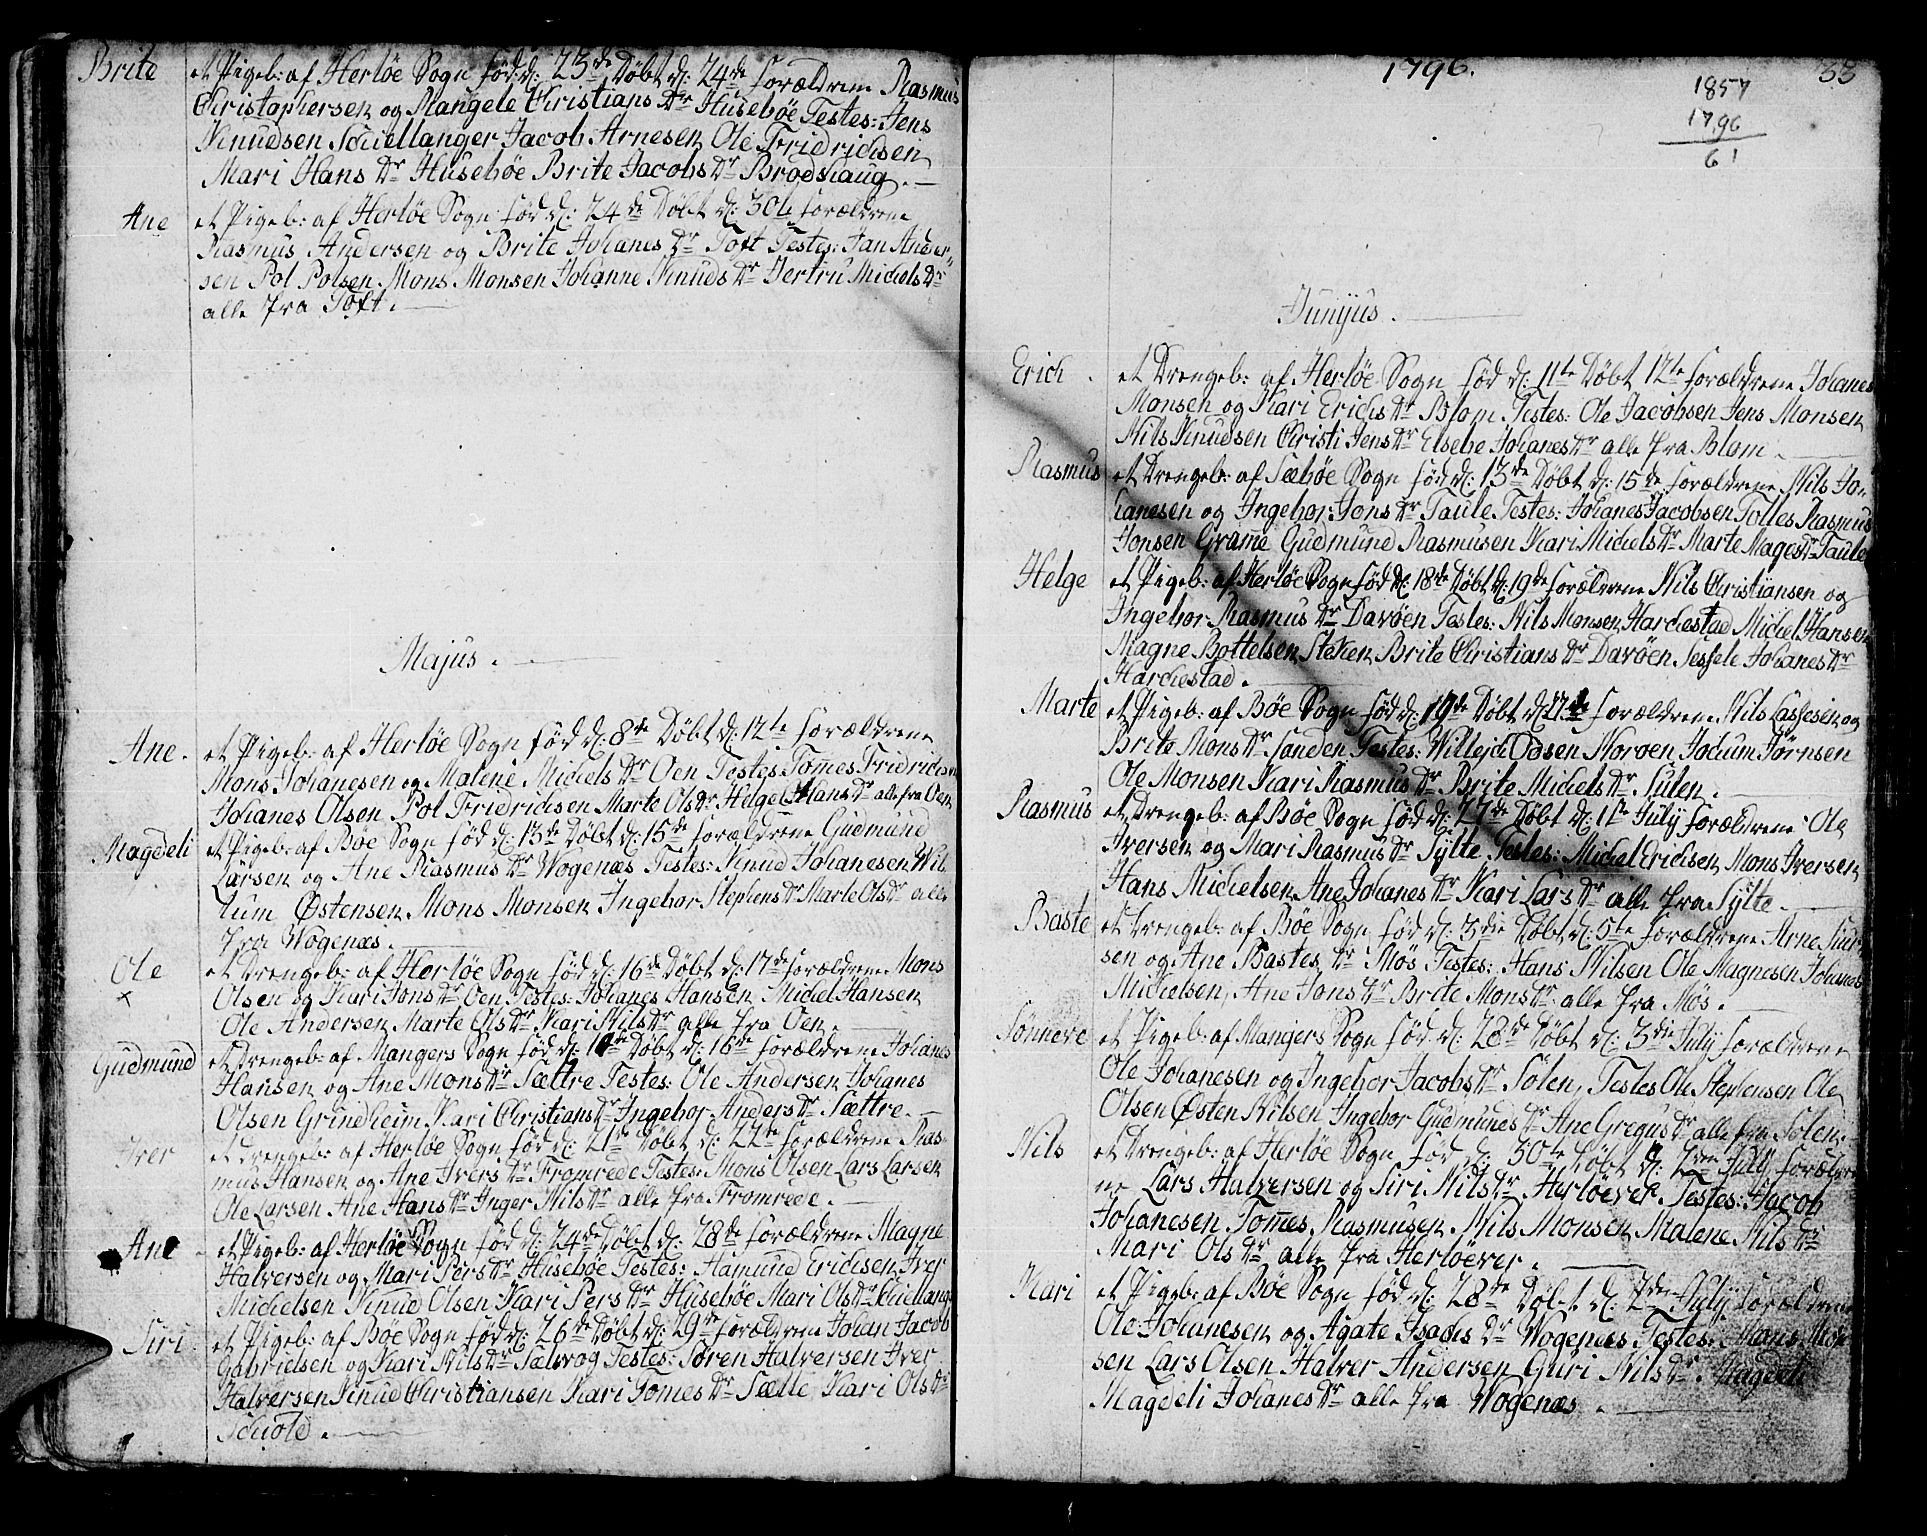 Brite et Pigeb: af Herløe Sogn fød d: 23de Døbt d: 24de forældrene Rasmus
Christophersen og Mangele Christians Dr Husebøe Testes: Jens
Knudsen Schiellanger Jacob Arnesen Ole Fridrichsen
Mari Hans Dr Husebøe Brite Jacobs Dr Brodshaug.
Ane et Pigeb: af Herløe Sogn fød d: 24de Døbt d: 30te forældrene
Rasmus Andersen og Brite Johanes Dr Toft Testes: Jan Ander-
sen Pol Polsen Mons Monsen Johanne Knuds Dr Jertru Michels Dr
alle fra Toft.
Majus.
Ane. et Pigeb: af Herløe Sogn fød d: 8de Døbt d: 12te forældrene
Mons Johanesen og Malene Michels Dr Oen Testes Tomes Fridrichsen
Johanes Olsen Pol Fridrichsen Marte Ols Dr Helge Hans Dr alle fra Oen
Magdeli et Pigeb: af Bøe Sogn fød d: 13de Døbt d: 15de forældrene Gudmund
Larsen og Ane Rasmus Dr Wogenæs Testes: Knud Johanesen Wil-
lum Østensen Mons Monsen Ingebor Stephens Dr Marte Ols Dr alle
fra Wogenæs.
Ole et Drengeb: af Herløe Sogn fød d: 16de Døbt d: 17de forældrene Mons
x Olsen og Kari Jons Dr Oen Testes: Johanes Hansen Michel Hansen
Ole Andersen Marte Ols Dr Kari Nils Dr alle fra Oen.
Gudmund et Drengeb: af Mangers Sogn fød d: Døbt d: 16de forældrene Johanes
Hansen og Ane Mons Dr Sættre Testes: Ole Andersen Johanes
Olsen Grindheim Kari Christians Dr Ingebor Anders Dr Sættre.
Iver et Drengeb: af Herløe Sogn fød d: 21de Døbt d: 22de forældrene Ras-
mus Hansen og Ane Ivers Dr Fromrede Testes: Mons Olsen Lars Larsen
Ole Larsen Ane Hans Dr Inger Nils Dr alle fra Fromrede.
Ane et Pigeb: af Herløe Sogn fød d: 24de Døbt d: 28de forældrene Magne
Halversen og Mari Pers Dr Husebøe Testes: Hamund Erichsen Iver
Michelsen Knud Olsen Kari Pers Dr Husebøe Mari Ols Dr Schiellanger
Siri. et Pigeb: af Bøe Sogn fød d: 26de Døbt d: 29de forældrene Johan Jacob
Gabrielsen og Kari Nils Dr Sælvog Testes: Søren Halversen Iver
Halversen Knud Christiansen Kari Tomes Dr Sælle Kari Ols Dr
Schold.
1796. 33
1857
1796
61
Junijus.
Erich. et Drengeb: af Herløe Sogn fød d: 11te Døbt 12te forældrene Johanes
Monsen og Kari Erichs Dr Blom Testes: Ole Jacobsen Jens Monsen
Nils Knudsen Christi Jens Dr Elsebe Johanes Dr alle fra Blom.
Rasmus et Drengeb: af Sæbøe Sogn fød d: 13de Døbt d: 15de forældrene Nils Jo-
hanesen og Ingebor Jons Dr Taule Testes: Johanes Jacobsen Tolles Rasmus
Jonsen Grame Gudmund Rasmusen Kari Michels Dr Marte Mages Dr Taule
Helge et Pigeb: af Herløe Sogn fød d: 18de Døbt d: 19de forældrene Nils Christiansen og
Ingebor Rasmus Dr Davøen Testes: Nils Monsen Harchestad Michel Hansen
Magne Bottelsen Steken Brite Christians Dr Davøen Sessele Johanes Dr
Harchestad.
Marte et Pigeb: af Bøe Sogn fød d: 19de Døbt d: 27de forældrene Nils Lassesen og
Brite Mons Dr Sanden Testes: Willejch Odsen Noroen Jochum Jørnsen
Ole Monsen Kari Rasmus Dr Brite Michels Dr Sulen.
Rasmus et Drengeb: af Bøe Sogn fød d: 27de Døbt d: 1te July forældrene Ole
Iversen og Mari Rasmus Dr Sylte Testes: Michel Erichsen Mons Iversen
Hans Michelsen Ane Johanes Dr Kari Lars Dr alle fra Sylte.
Baste et Drengeb: af Bøe Sogn fød d: 3die Døbt d: 5te forældrene Arne Siur-
sen og Ane Bastes Dr Møs Testes: Hans Nilsen Ole Magnesen Johanes
Michelsen, Ane Jons Dr Brite Mons Dr alle fra Møs.
Sønneve et Pigeb: af Mangers Sogn fød d: 28de Døbt d: 3die July forældrene
Ole Johanesen og Ingebor Jacobs Dr Solen, Testes Ole Stephensen Ole
Olsen Østen Nilsen Ingebor Gudmunds Dr Ane Gregus Dr alle fra Solen.
Nils et Drengeb: af Herløe Sogn fød d: 30te Døbt d: 2den July foræld-
ne Lars Halversen og Siri Nils Dr Herløever Testes: Jacob
Johanesen Tomes Rasmusen Nils Monsen Malene Nils Dr
Mari Ols Dr alle fra Herløever.
Kari et Pigeb: af Bøe Sogn fød d: 28de Døbt d: 2den July forældrene
Ole Johanesen og Agate Isachs Dr Wogenæs Testes: Mons Mon-
sen Lars Olsen Halver Andersen Guri Nils Dr Magdeli
Magdeli Johanes Dr alle fra Wogenæs.